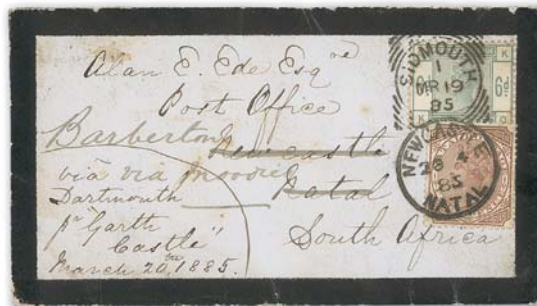 Alan E. Ede Esqre
Post Office
Barberton
Newcastle
via via
Natal
Dartmouth
pr "Garth
Castle"
South Africa
March 20th, 1885.
SIDMOUTH
1
MR 19
85
6d
K
K
NEWCASTLE
4
85
NATAL